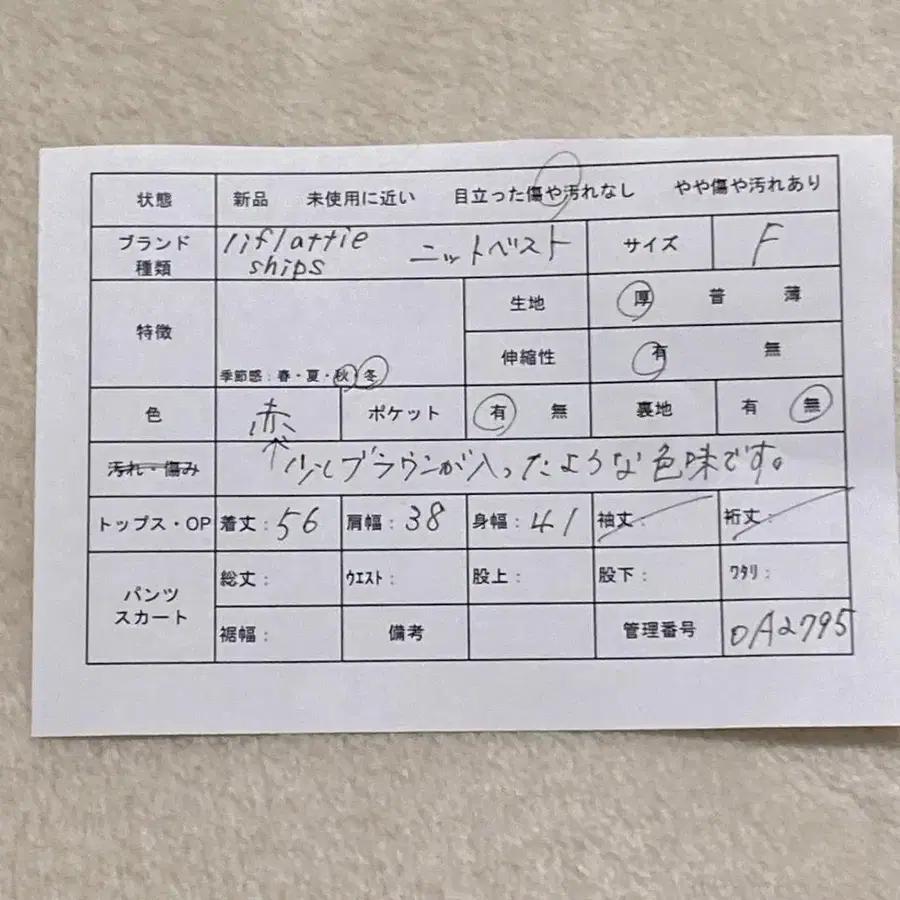 状態 新品 未使用に近い 目立った傷や汚れなし やや傷や汚れあり
ブランド 種類 liflattie ships ニットベスト サイズ F
特徴 生地 厚 普 薄
伸縮性 有 無
季節感:春・夏・秋・冬
色 赤 ポケット 有 無 裏地 有 無
汚れ・傷み ↑少しブラウンが入ったような色味です。
トップス・OP 着丈:56 肩幅:38 身幅:41 袖丈: 裄丈:
パンツ スカート 総丈: ウエスト: 股上: 股下: ワタリ:
裾幅: 備考 管理番号 OA2795